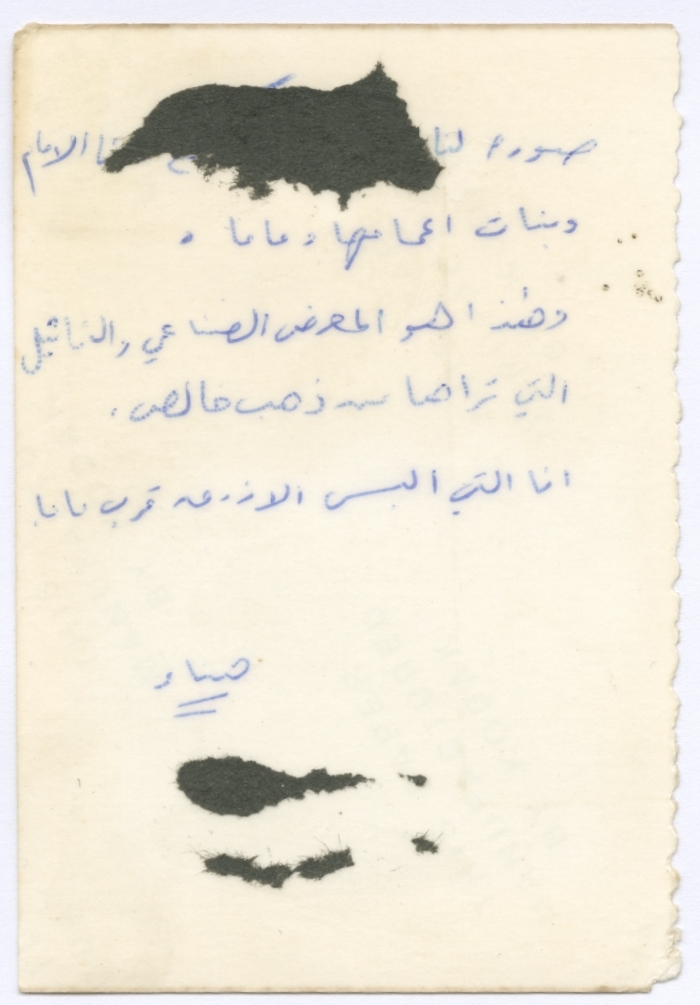 صوره لنا الامام
وبنات اعمامها وماما .
وهذا هو المعرض الصناعي والتماثيل
التي تراها من ذهب خالص .
انا التي البس الازرق قرب بابا
هناء